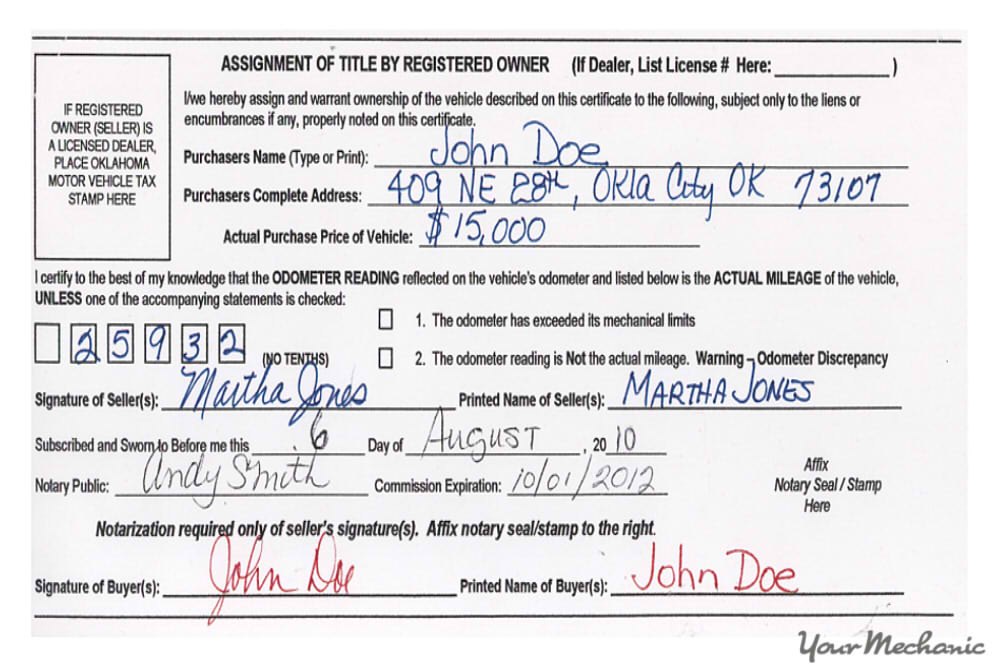 ASSIGNMENT OF TITLE BY REGISTERED OWNER (If Dealer, List License # Here: ____________ )
IF REGISTERED
OWNER (SELLER) IS
A LICENSED DEALER,
PLACE OKLAHOMA
MOTOR VEHICLE TAX
STAMP HERE
I/we hereby assign and warrant ownership of the vehicle described on this certificate to the following, subject only to the liens or
encumbrances if any, properly noted on this certificate.
Purchasers Name (Type or Print): John Doe
Purchasers Complete Address: 409 NE 28th, Okla City OK 73107
Actual Purchase Price of Vehicle: $15,000
I certify to the best of my knowledge that the ODOMETER READING reflected on the vehicle's odometer and listed below is the ACTUAL MILEAGE of the vehicle,
UNLESS one of the accompanying statements is checked:
1. The odometer has exceeded its mechanical limits
25932 (NO TENTHS) 2. The odometer reading is Not the actual mileage. Warning - Odometer Discrepancy
Signature of Seller(s): Martha Jones Printed Name of Seller(s): MARTHA JONES
Subscribed and Sworn to Before me this 6 Day of August, 20 10
Notary Public: Andy Smith Commission Expiration: 10/01/2012
Affix
Notary Seal / Stamp
Here
Notarization required only of seller's signature(s). Affix notary seal/stamp to the right.
Signature of Buyer(s): John Doe Printed Name of Buyer(s): John Doe
YourMechanic